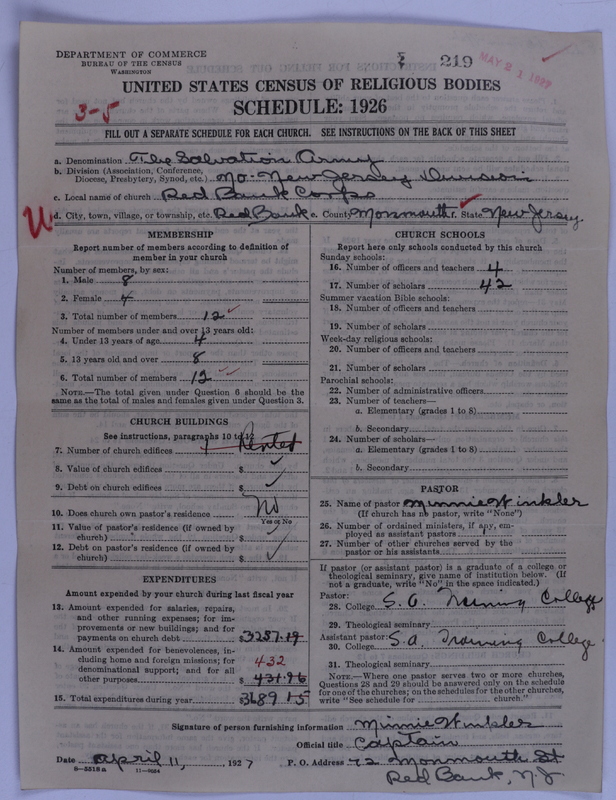 DEPARTMENT OF COMMERCE
BUREAU OF THE CENSUS
WASHINGTON
219
MAY 21 1927
UNITED STATES CENSUS OF RELIGIOUS BODIES
SCHEDULE: 1926
3-5
FILL OUT A SEPARATE SCHEDULE FOR EACH CHURCH. SEE INSTRUCTIONS ON THE BACK OF THIS SHEET
a. Denomination The Salvation Army
b. Division (Association, Conference, Diocese, Presbytery, Synod, etc.) No. New Jersey Division
c. Local name of church Red Bank Corps
d. City, town, village, or township, etc. Red Bank e. County Monmouth f. State New Jersey.
MEMBERSHIP
Report number of members according to definition of
member in your church
Number of members, by sex:
1. Male 8
2. Female 4
3. Total number of members 12
Number of members under and over 13 years old:
4. Under 13 years of age 4
5. 13 years old and over 8
6. Total number of members 12
NOTE.—The total given under Question 6 should be the
same as the total of males and females given under Question 3.
CHURCH BUILDINGS
See instructions, paragraphs 10 to 12
7. Number of church edifices Rented
8. Value of church edifices $
9. Debt on church edifices $
10. Does church own pastor's residence No
Yes or No
11. Value of pastor's residence (if owned by
church) $
12. Debt on pastor's residence (if owned by
church) $
EXPENDITURES
Amount expended by your church during last fiscal year
13. Amount expended for salaries, repairs,
and other running expenses; for im-
provements or new building; and for
payments on church debt $3257.19
14. Amount expended for benevolences, in-
cluding home and foreign missions; for
denominational support; and for all
other purposes 432 $ 431.96
15. Total expenditures during year $3689 15
CHURCH SCHOOLS
Report here only schools conducted by this church
Sunday schools:
16. Number of officers and teachers 4
17. Number of scholars 42
Summer vacation Bible schools:
18. Number of officers and teachers
19. Number of scholars
Week-day religious schools:
20. Number of officers and teachers
21. Number of scholars
Parochial schools:
22. Number of administrative officers
23. Number of teachers—
a. Elementary (grades 1 to 8)
b. Secondary
24. Number of scholars—
a. Elementary (grades 1 to 8)
b. Secondary
PASTOR
25. Name of pastor Minnie Winkler
(If church has no pastor, write "None")
26. Number of ordained ministers, if any, em-
ployed as assistant pastors
27. Number of other churches served by the
pastor or his assistants
If pastor (or assistant pastor) is a graduate of a college or
theological seminary, give name of institution below. (If
not a graduate, write "No" in the space indicated.)
Pastor:
28. College S. A. Training College
29. Theological seminary
Assistant pastor:
30. College S.A. Training College
31. Theological seminary
NOTE.—Where one pastor serves two or more churches,
Questions 28 and 29 should be answered only on the schedule
for one of the churches; on the schedules for the other churches,
write "See schedule for church."
Signature of person furnishing information Minnie Winkler
Official title Captain
Date April 11, 1927 P. O. Address 72 Monmouth St
8-5518a 11-9054 Red Bank, NJ